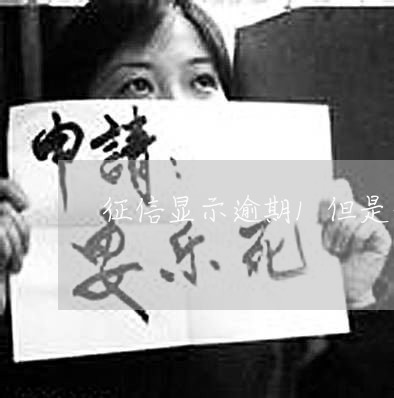 申請：
征信显示逾期/但是
安乐死